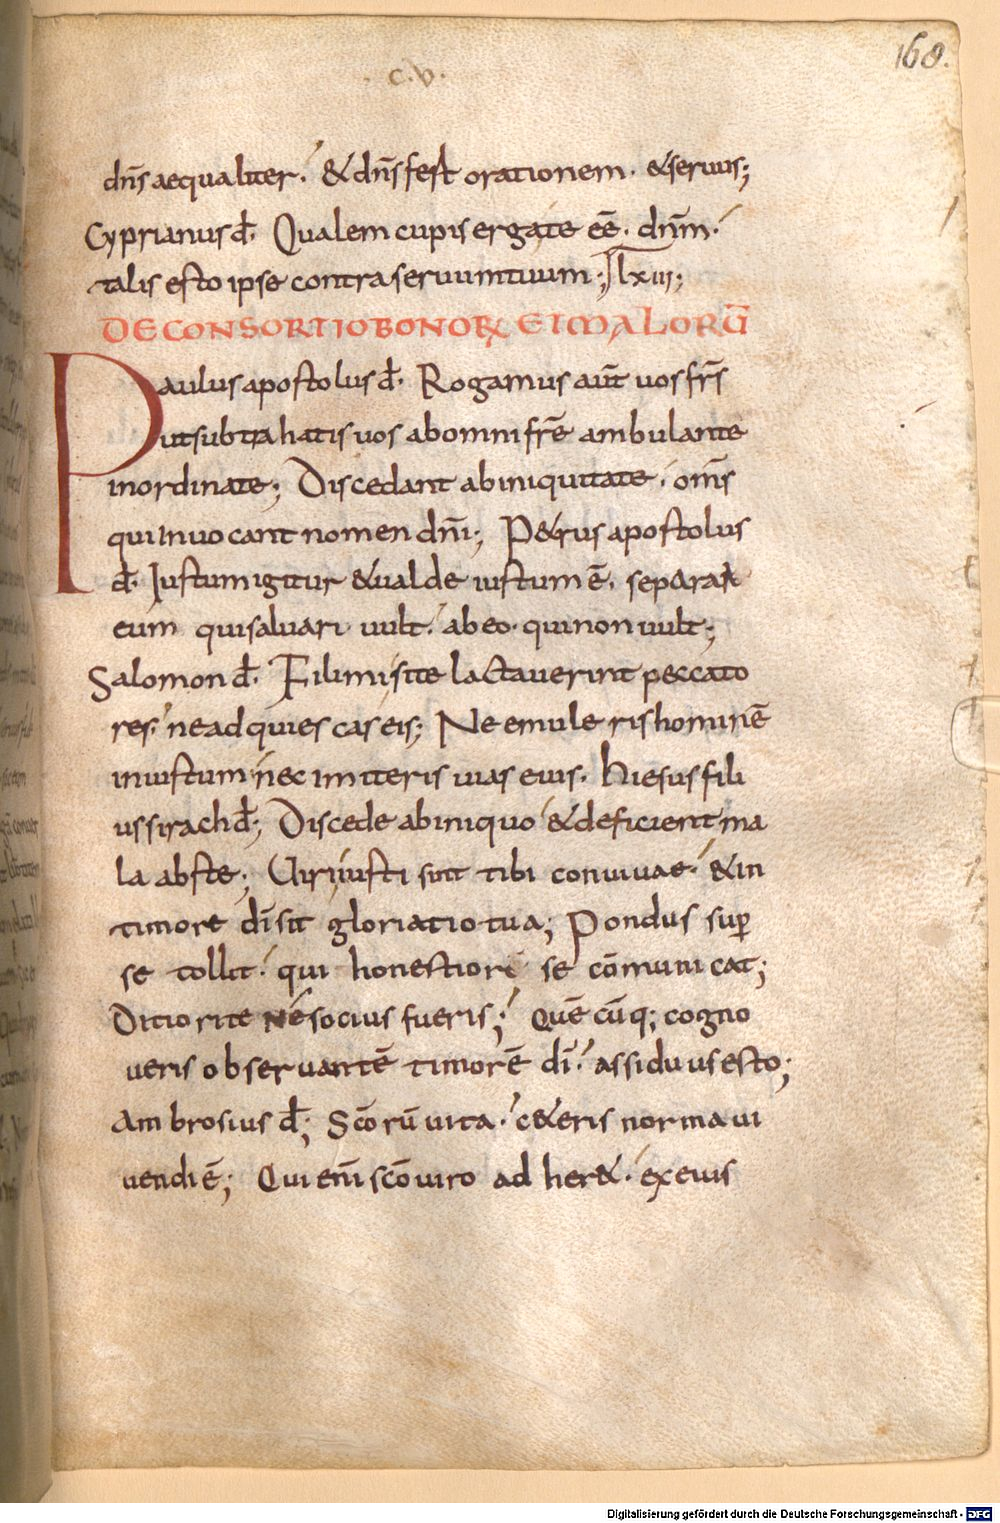 168.
· c · v ·
dñs aequaliter · & dñs fest orationem · & seruus;
Cyprianus đ · Qualem cupis erga te eē · dnm̄ ·
talis esto ipse contra seruum tuum · lxiii;
DE CONSORTIO BONORꝜ ET MALORŪ
Paulus apostolus đ · Rogamus aūt uos frs̄
ut subtrahatis uos ab omni frē ambulante
inordinate; Discedant ab iniquitate · oms̄
qui inuocant nomen dnī; P&rus apostolus
đ · Iustum igitur & ualde iustum ē · separari
eum qui saluari uult · ab eo · qui non uult;
Salomon đ · Fili mi si te lactauerint peccato
res · ne adquiescas eis; Ne emuleris hominē
iniustum nec imiteris uias eius · Hiesus fili
us sirach đ; Discede ab iniquo & deficient ma
la abs te; Uiri iusti sint tibi conuiuae · & in
timore dī sit gloriatio tua; Pondus suꝑ
se tollit · qui honestiori se cōmunicat;
Ditiori te ne socius fueris; Quē cūq; cogno
ueris obseruantē timorē dī · assiduus esto;
Ambrosius đ; Scōrū uita · c&eris norma ui
uendi ē; Qui enī scō uiro adher& · ex eius
Digitalisierung gefördert durch die Deutsche Forschungsgemeinschaft - DFG